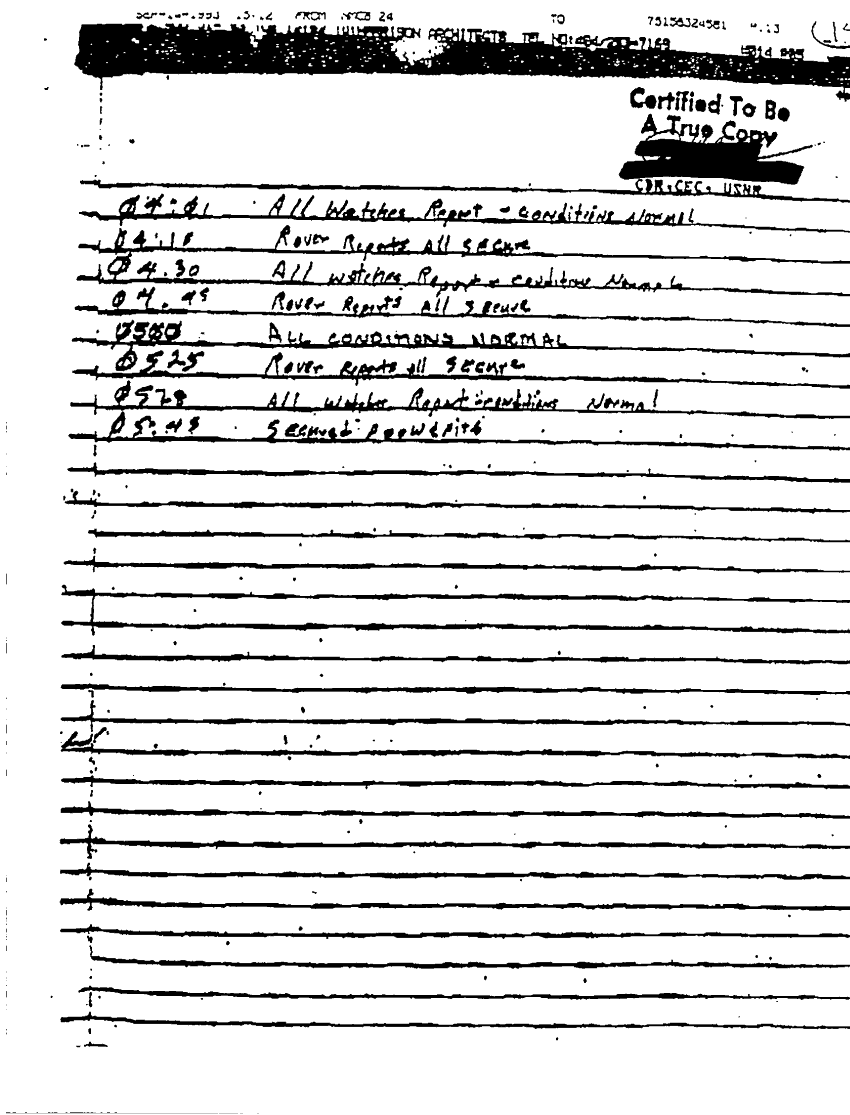 1993 15:12 FROM NMCB 24 TO 75156324581 P.13
ARCHITECTS TEL NO: -7169
Certified To Be
A True Copy
CDR, CEC, USNR
Ø4:01 All Watches Report - conditions Normal
Ø4:15 Rover Reports All Secure
Ø4.30 All watches Report - conditions Normal
Ø4.45 Rover Reports All Secure
Ø5ØØ ALL CONDITIONS NORMAL
Ø525 Rover Reports all Secure
Ø528 All watches Report - conditions Normal
Ø5:45 Secured